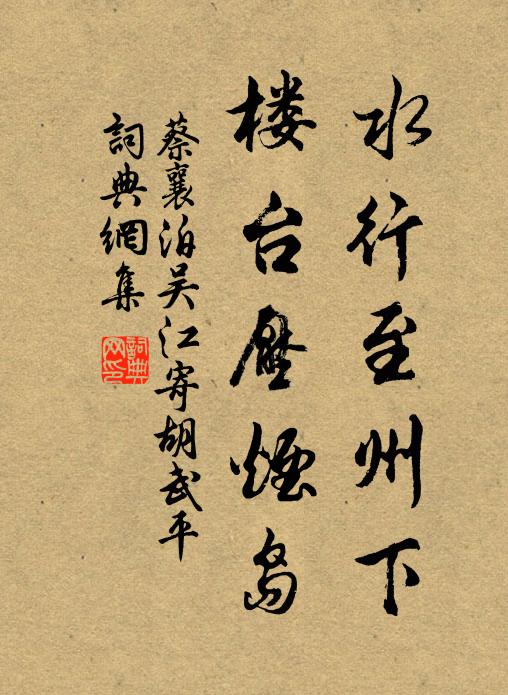 水行至州下
楼台壓煙島
蔡襄泊吴江寄胡武平
詞典網集
詞典网印